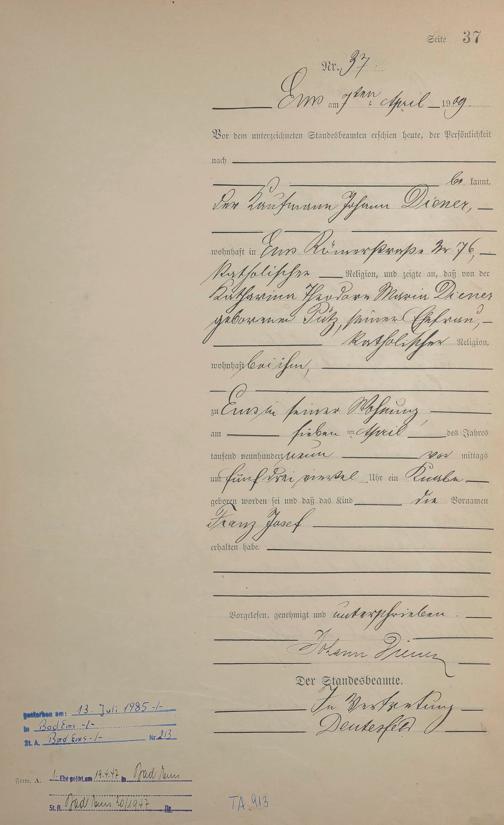 Seite 37
Nr. 37
Ems am 7ten April 1909
Vor dem unterzeichneten Standesbeamten erschien heute, der Persönlichkeit
nach
be kannt,
der Kaufmann Johann Diener,
wohnhaft in Ems Römerstraße Nr 76,
katholischer Religion, und zeigte an, daß von der
Katharina Theodora Maria Diener
geborenen Pütz, seiner Ehefrau,
katholischer Religion,
wohnhaft bei ihm,
zu Ems in seiner Wohnung
am sieben ten April des Jahres
tausend neunhundert neun vor mittags
um fünf drei viertel Uhr ein Knabe
geboren worden sei und daß das Kind die Vornamen
Franz Josef
erhalten habe.
Vorgelesen, genehmigt und unterschrieben
Johann Diener
Der Standesbeamte.
In Vertretung
gestorben am: 13 Juli 1985 -/-
in Bad Ems -/-
St. A. Bad Ems -/- Nr. 213
Form. A. 1. Ehe geschl. am 19.4.47 in Bad Ems
St. A. Bad Ems 20/1947 Nr.
TA 913